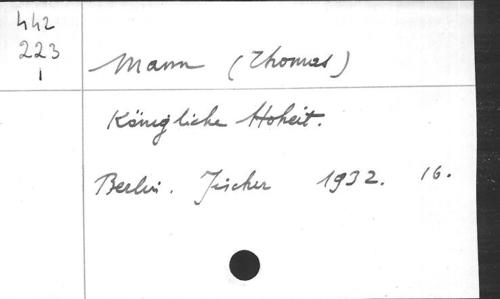 442
223
1
Mann (Thomas)
Königliche Hoheit.
Berlin. Fischer 1932. 16.